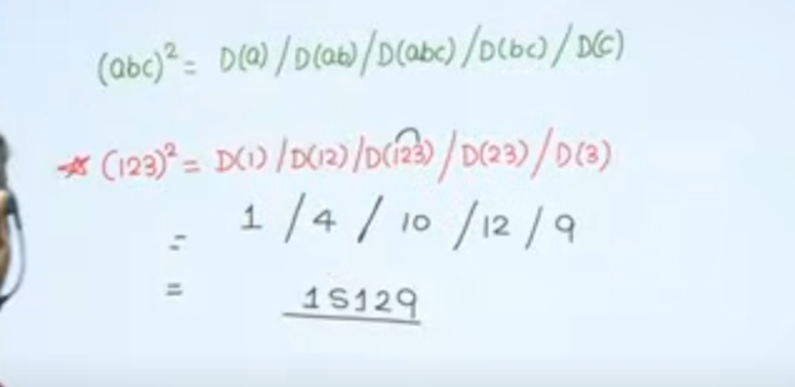 (abc)² = D(a) / D(ab) / D(abc) / D(bc) / D(c)
* (123)² = D(1) / D(12) / D(123) / D(23) / D(3)
= 1 / 4 / 10 / 12 / 9
= 15129